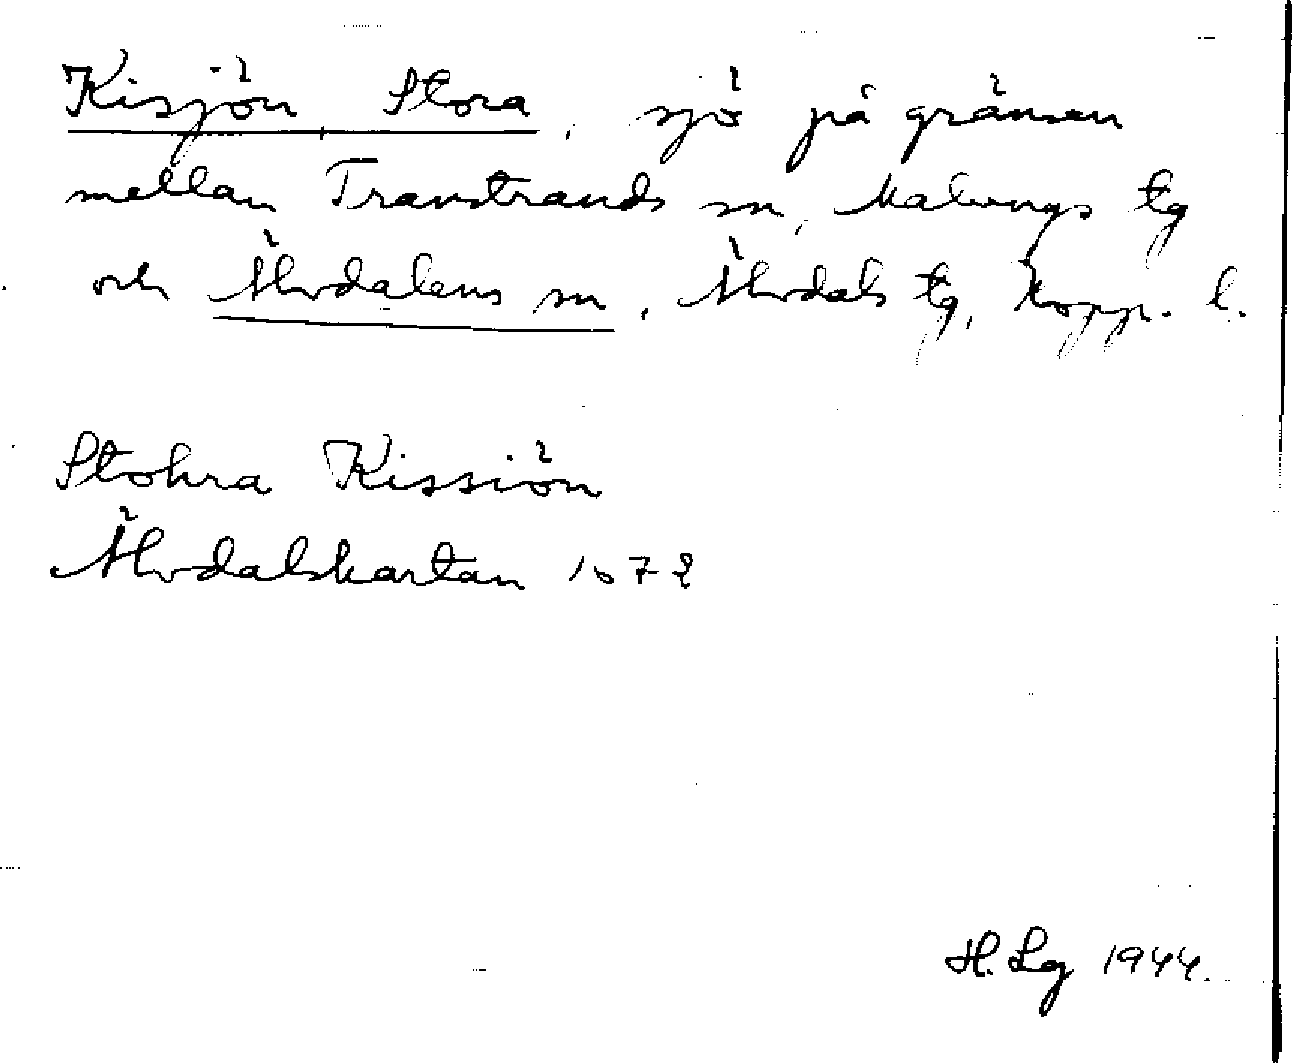 Kisjön, Stora, sjö på gränsen
mellan Transtrands sn, Malungs tg
och Älvdalens sn, Älvdals tg, Kopp. l.
Stohra Kissiön
Älvdalskartan 1672
H. Lg 1944.